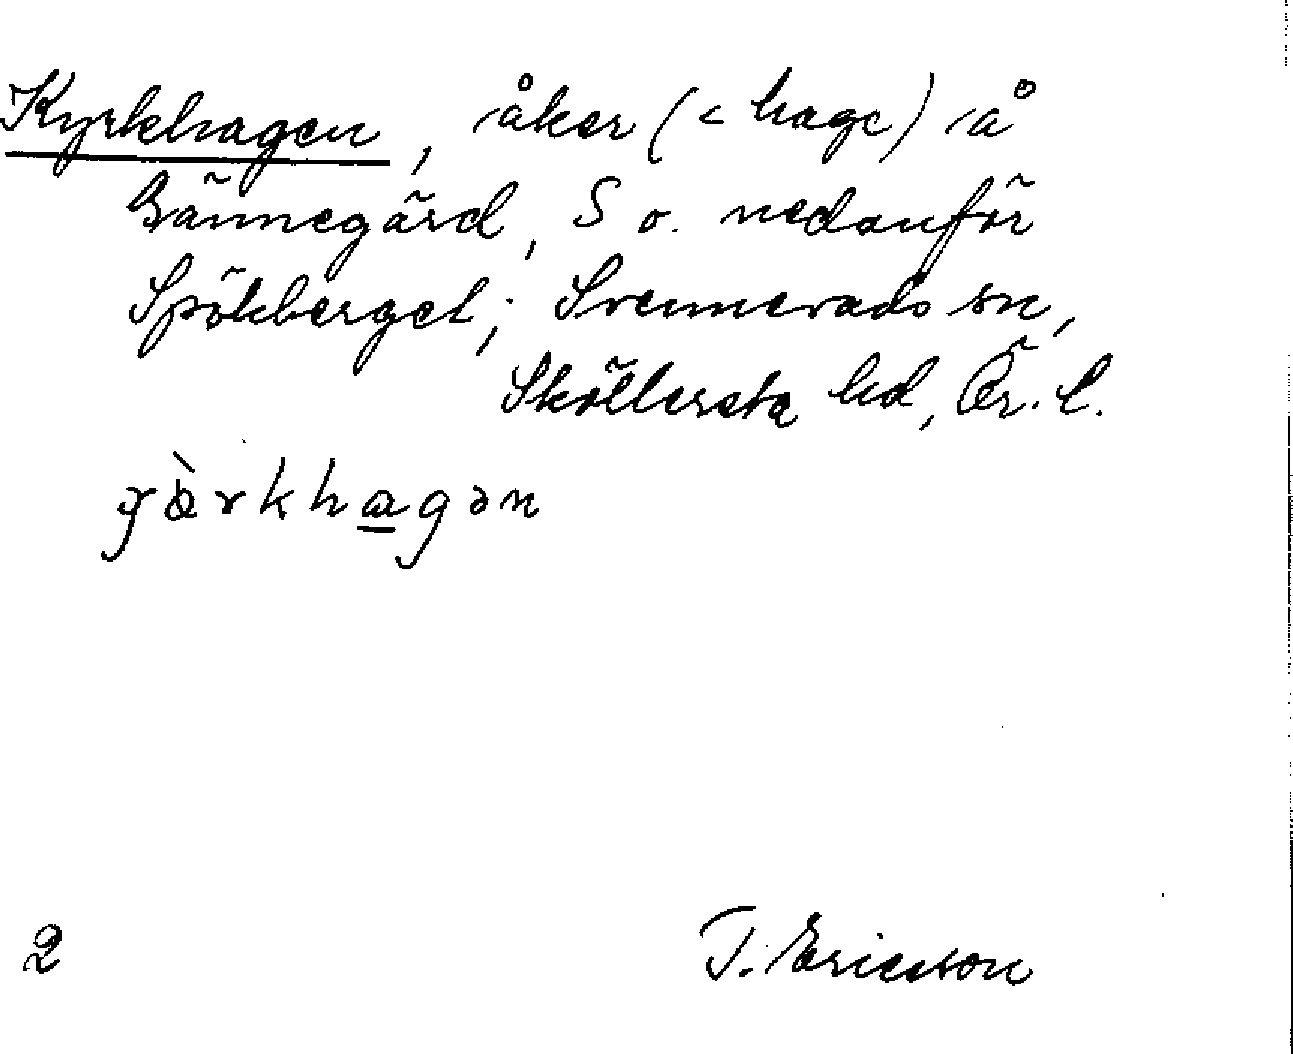 Kyrkhagen, åker (< hage) å
Bännegärd, S o. nedanför
Spökberget; Svennevads sn,
Sköllersta hd, Ör. l.
2
T. Ericsson